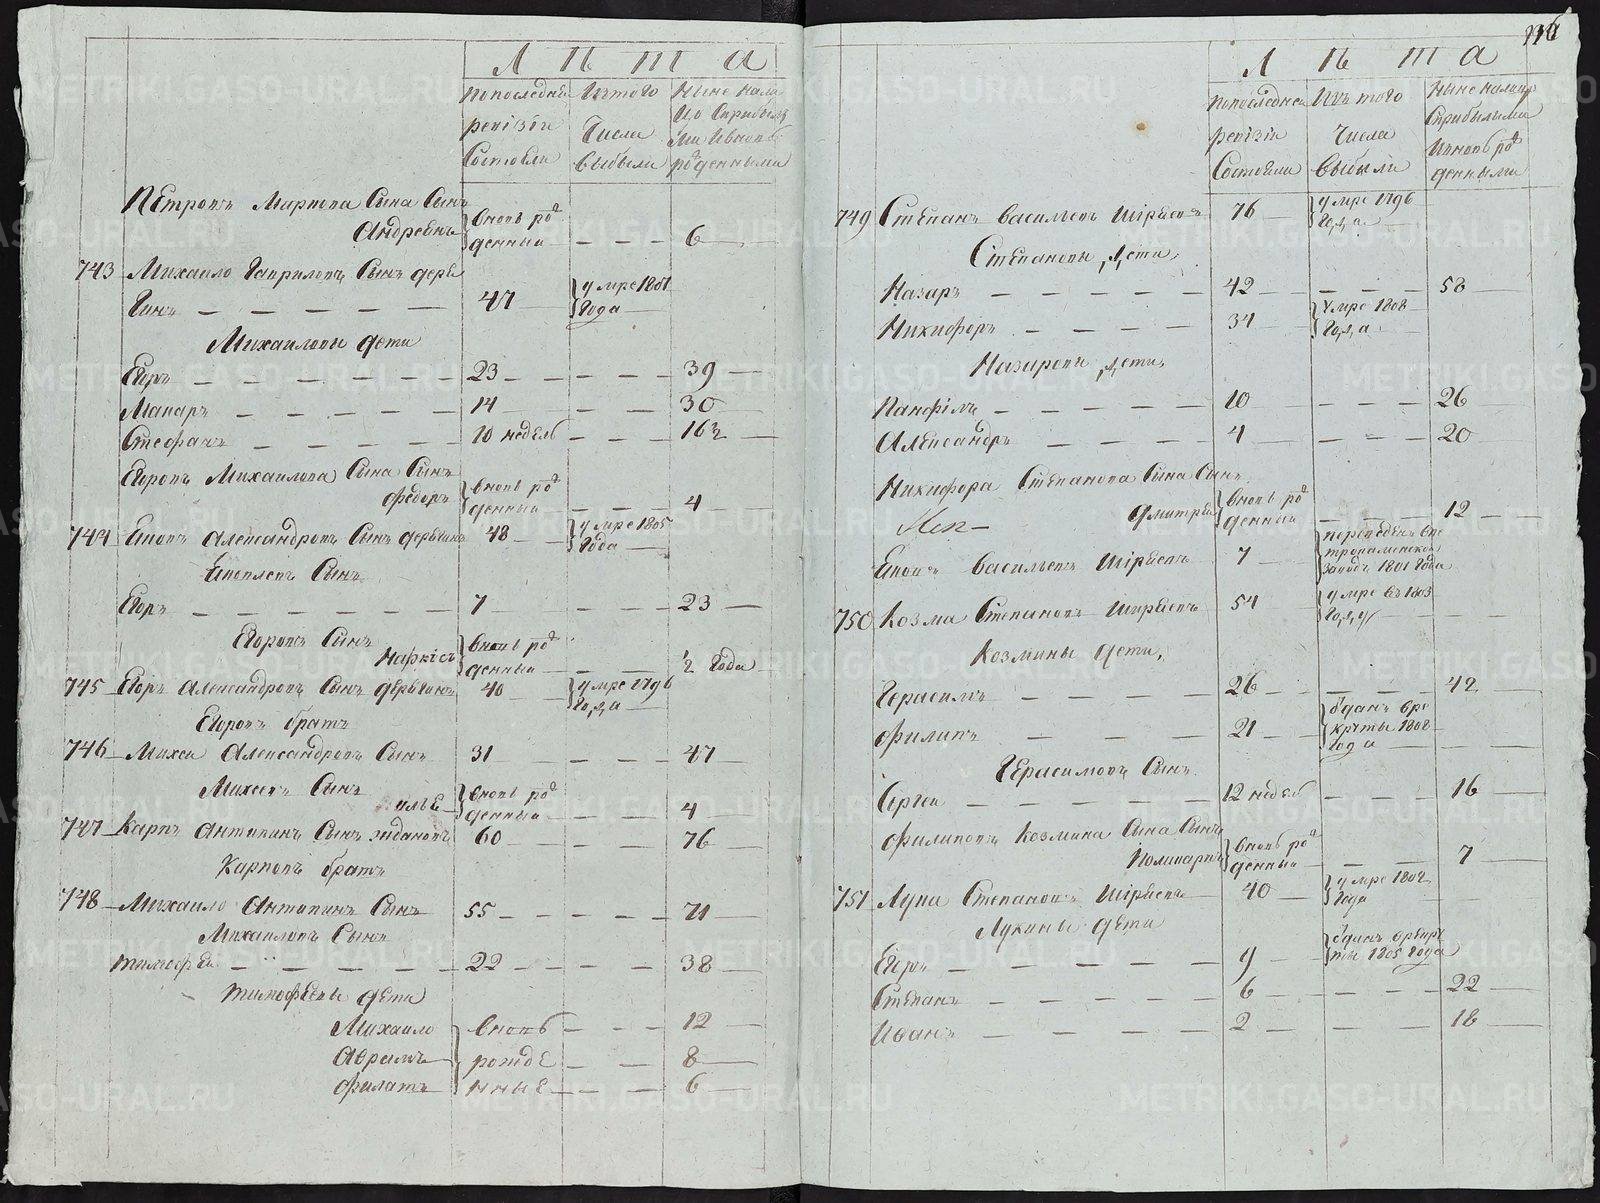 Л Ѣ т а
По последней ревизии Состояли
Изъ того Числа выбыли
Ныне налицо Сприбылыми Ивновь рожденными
Петровъ Мартова Сына Сынъ
Андреянъ вновь рожденный — — — 6
743 Михаило Гавриловъ Сынъ дерягинъ — 47 умре 1801 Года
Михаиловы дети
Егоръ — 23 — 39
Макаръ — 14 — 30
Стефанъ — 10 недель — 16½
Егоровъ Михаилова Сына Сынъ
Федоръ вновь рожденный — — — 4
744 Яковъ Александровъ Сынъ дерягинъ 48 умре 1805 Года
Яковлевъ Сынъ
Егоръ — 7 — 23
Егоровъ Сынъ
Наркисъ вновь рожденный — — ½ Года
745 Егоръ Александровъ Сынъ дерягинъ 40 умре 1796 Года
Егоровъ братъ
746 Михеи Александровъ Сынъ 31 — 47
Михеевъ Сынъ
илья вновь рожденный — — 4
747 Карпъ Антипинъ Сынъ ждановъ 60 — 76
Карповъ братъ
748 Михаило Антипинъ Сынъ 55 — 71
Михаиловъ Сынъ
тимофеи — 22 — 38
Тимофеевы дети
Михаило вновь — 12
Аврамъ рожде — 8
Филатъ нные — 6
116
Л Ѣ т а
По последней ревизии Состояли
Изъ того Числа выбыли
Ныне налицо Сприбылыми Ивновь рожденными
749 Степанъ васильевъ Ширяевъ 76 умре 1796 Года
Степановы дети
Назаръ — 42 — 58
Никифоръ — 34 умре 1808 Года
Назаровы дети
Панфилъ — 10 — 26
Александръ — 4 — 20
Никифора Степанова Сына Сынъ
дмитреи вновь рожденный — 12
Яковъ васильевъ Ширяевъ 7 переведенъ впетрокаменской заводъ 1801 Года
750 Козма Степановъ Ширяевъ 54 умре въ 1803 Году
Козмины дети
Герасимъ — 26 — 42
Филипъ — 21 отданъ врекруты 1808 Года
Герасимовъ Сынъ
Сергеи — 12 недель — 16
Филиповъ Козмина Сына Сынъ
Поликарпъ вновь рожденный — — 7
751 Лука Степановъ Ширяевъ 40 умре 1802 Года
Лукины дети
Егоръ — 9 отданъ врекруты 1805 Года
Степанъ — 6 — 22
Иванъ — 2 — 18